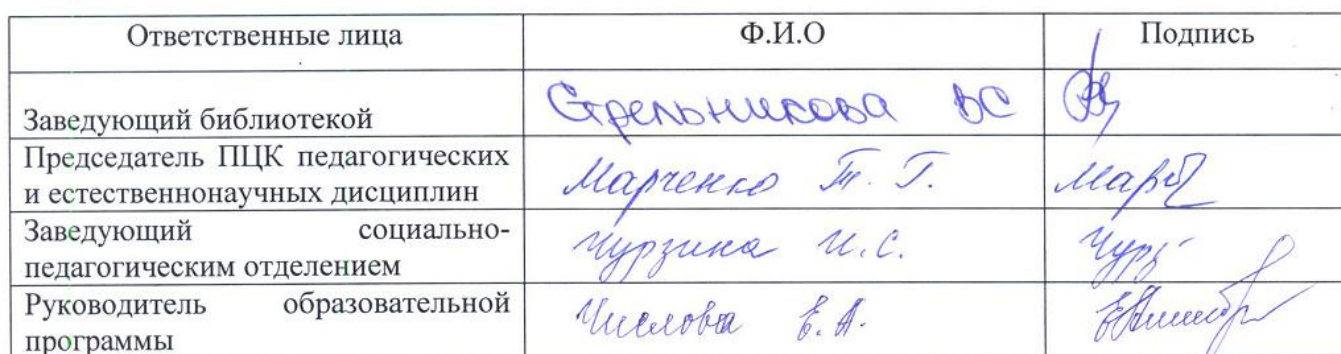 Ответственные лица Ф.И.О Подпись
Заведующий библиотекой Стрельникова ВС
Председатель ПЦК педагогических
и естественнонаучных дисциплин Марченко Т. Г.
Заведующий социально-
педагогическим отделением Чурзина И.С.
Руководитель образовательной
программы Числова Е.А.